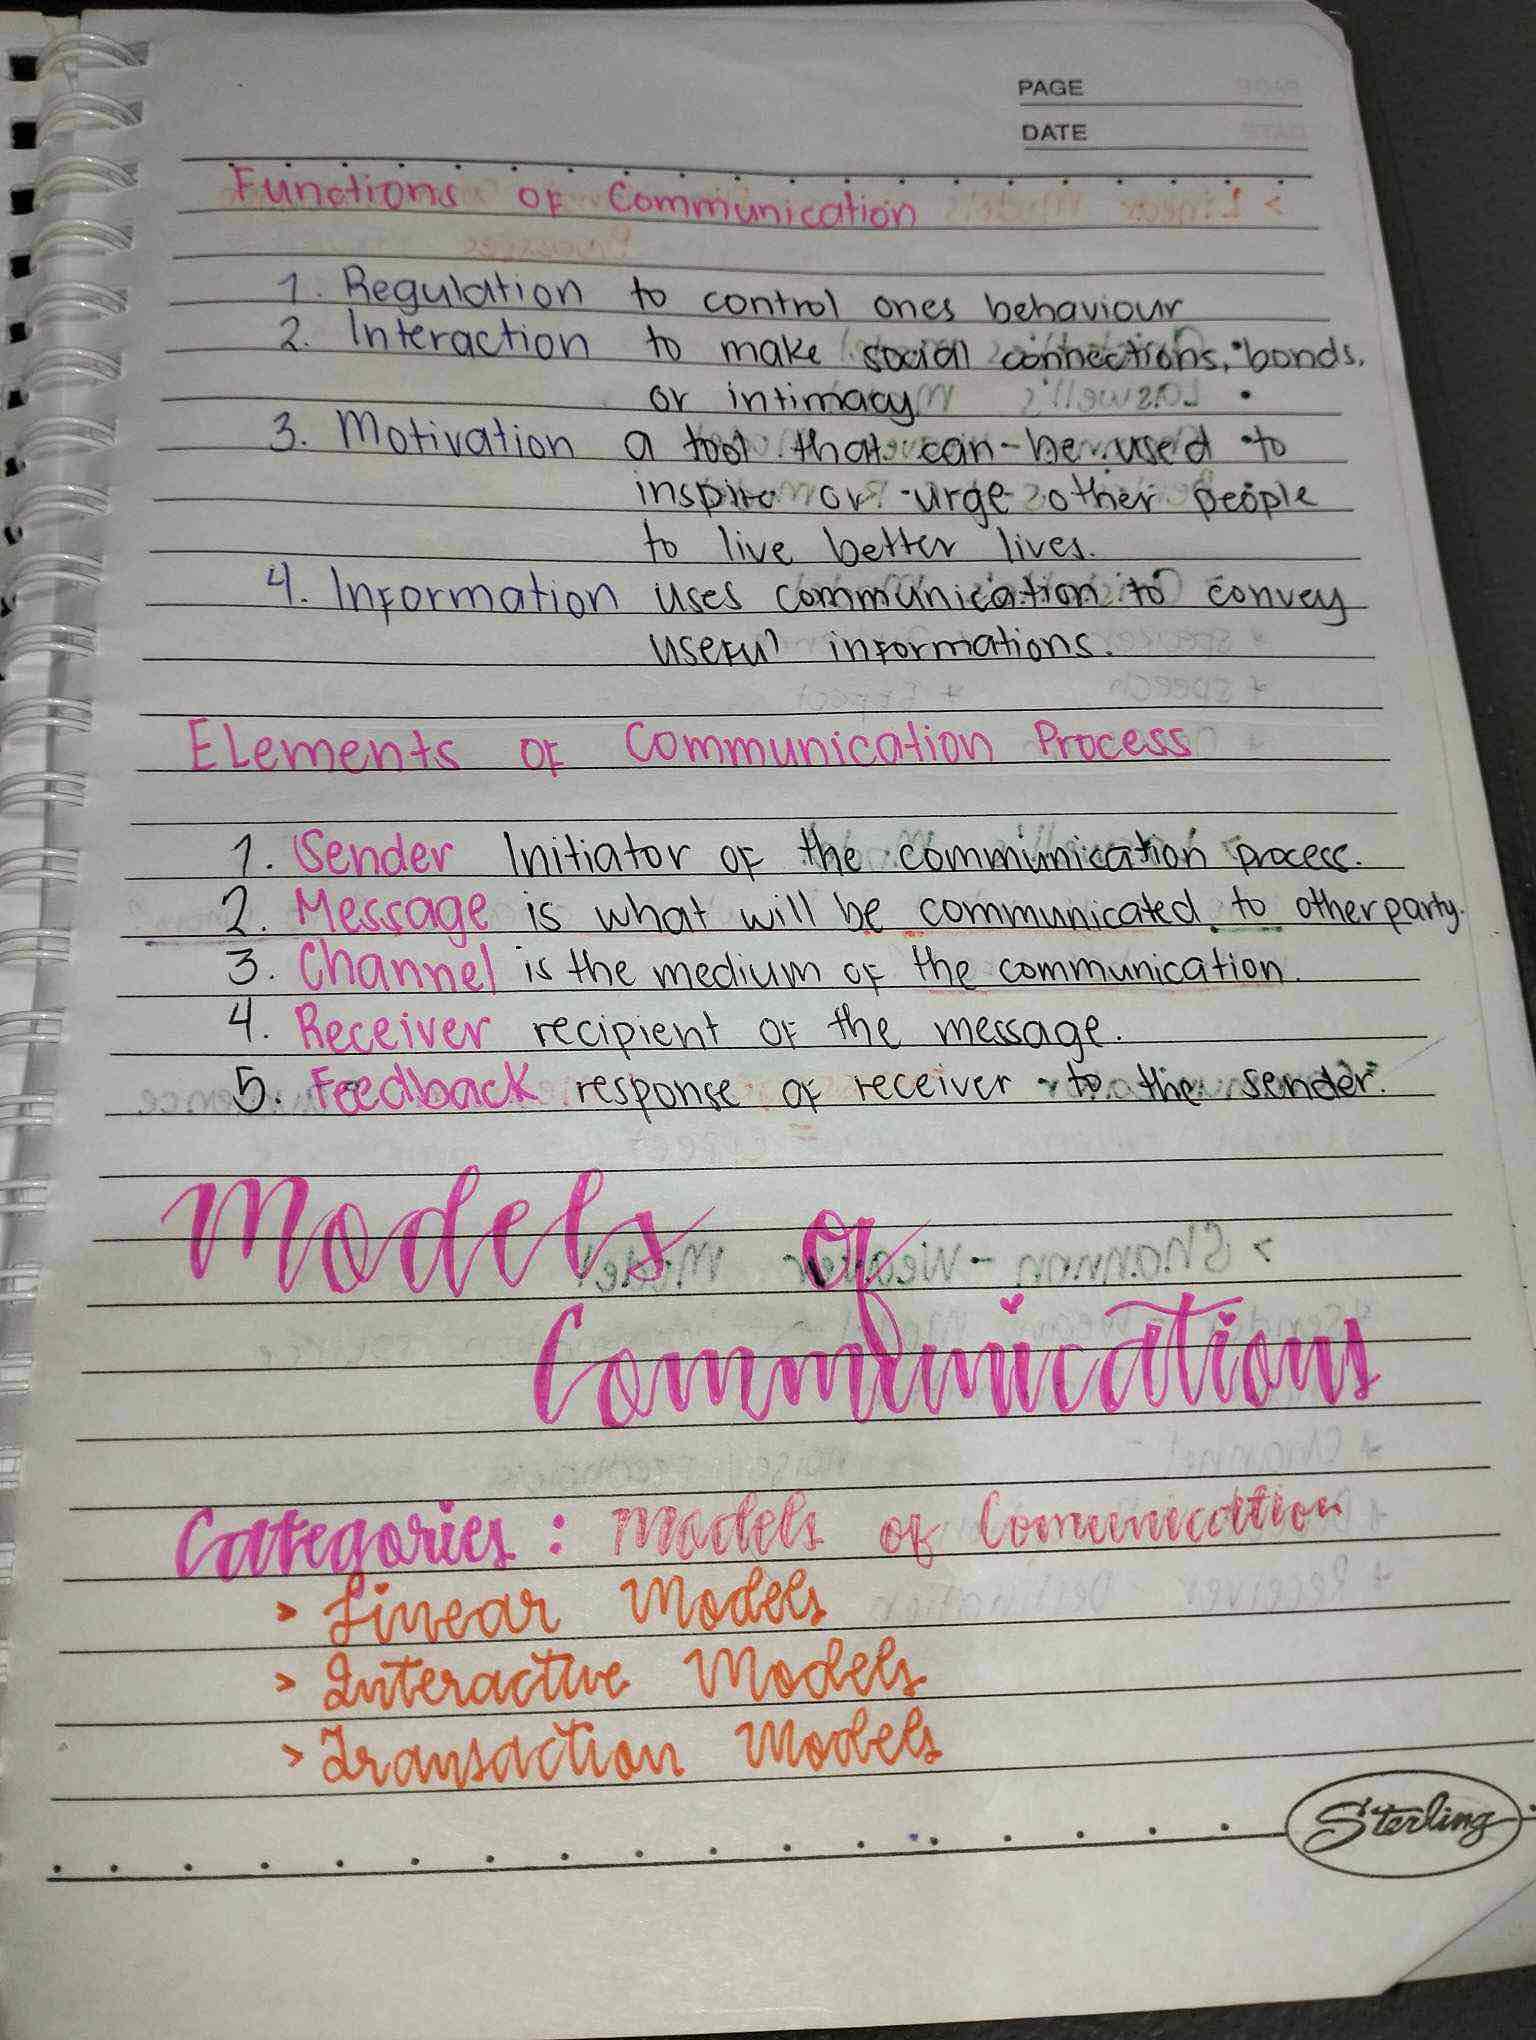 PAGE
DATE
Functions of Communication
1. Regulation to control ones behaviour
2. Interaction to make social connections, bonds,
or intimacy
3. Motivation a tool that can be used to
inspire or urge other people
to live better lives.
4. Information uses communication to convey
useful informations.
Elements of Communication Process
1. Sender Initiator of the communication process.
2. Message is what will be communicated to other party.
3. Channel is the medium of the communication.
4. Receiver recipient of the message.
5. Feedback response of receiver to the sender.
Models of
Communications
Categories: Models of Comunication
> Linear Models
> Interactive Models
> Transaction Models
Sterling